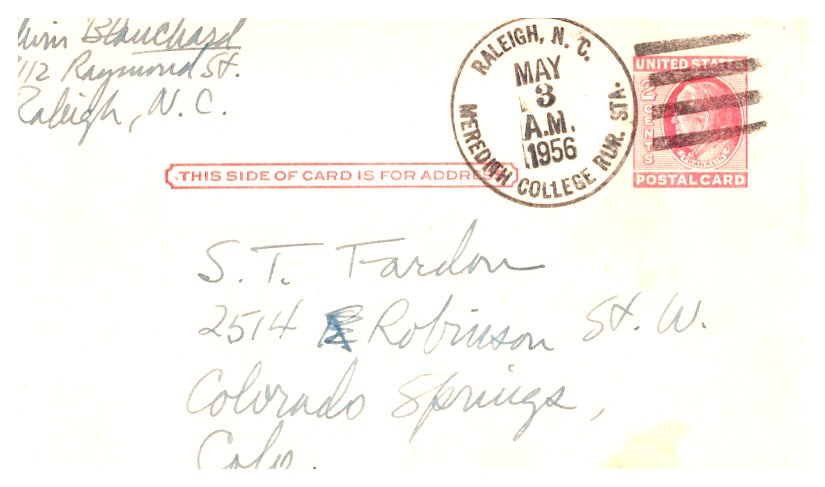 Blanchard
112 Raymond St.
Raleigh, N. C.
RALEIGH, N. C.
MAY
3
A.M.
1956
MEREDITH COLLEGE RUR. STA.
UNITED STATES
2 CENTS
FRANKLIN
POSTAL CARD
THIS SIDE OF CARD IS FOR ADDRE
S. T. Fardon
2514 Robinson St. W.
Colorado Springs,
Colo.